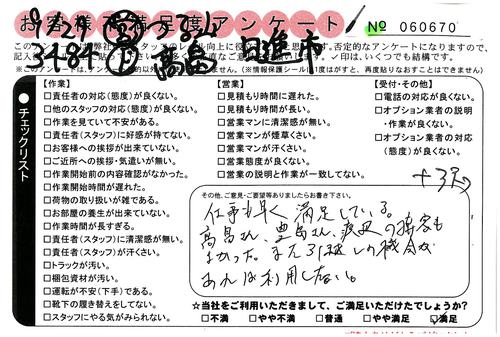 お客様大満足度アンケート
№ 060670
9/29
3484
【作業】
□責任者の対応(態度)が良くない。
□他のスタッフの対応(態度)が良くない。
□作業を見ていて不安がある。
□責任者(スタッフ)に好感が持てない。
□お客様への挨拶が出来ていない。
□ご近所への挨拶・気遣いが無い。
□作業開始前の内容確認がなかった。
□作業開始時間が遅れた。
□荷物の取り扱いが雑である。
□お部屋の養生が出来ていない。
□作業時間が長すぎる。
□責任者(スタッフ)に清潔感が無い。
□責任者(スタッフ)が汗くさい。
□トラックが汚い。
□梱包資材が汚い。
□運転が不安(下手)である。
□靴下の履き替えをしてない。
□スタッフにやる気がみられない。
【営業】
□見積もり時間に遅れた。
□見積もり時間が長い。
□営業マンに清潔感が無い。
□営業マンが煙草くさい。
□営業マンが汗くさい。
□営業態度が良くない。
□営業の説明と作業が一致してない。
【受付・その他】
□電話の対応が良くない。
□オプション業者の説明
・作業が良くない。
□オプション業者の対応
(態度)が良くない。
●チェックリスト
その他、ご意見・ご要望等ありましたらお書き下さい。
仕事も早く満足している。
高畠さん、豊島さん、渡辺の接客も
よかった。また引越しの機会が
あれば利用したい。
☆当社をご利用いただきまして、ご満足いただけたでしょうか?
□不満 □やや不満 □普通 □やや満足 ☑満足